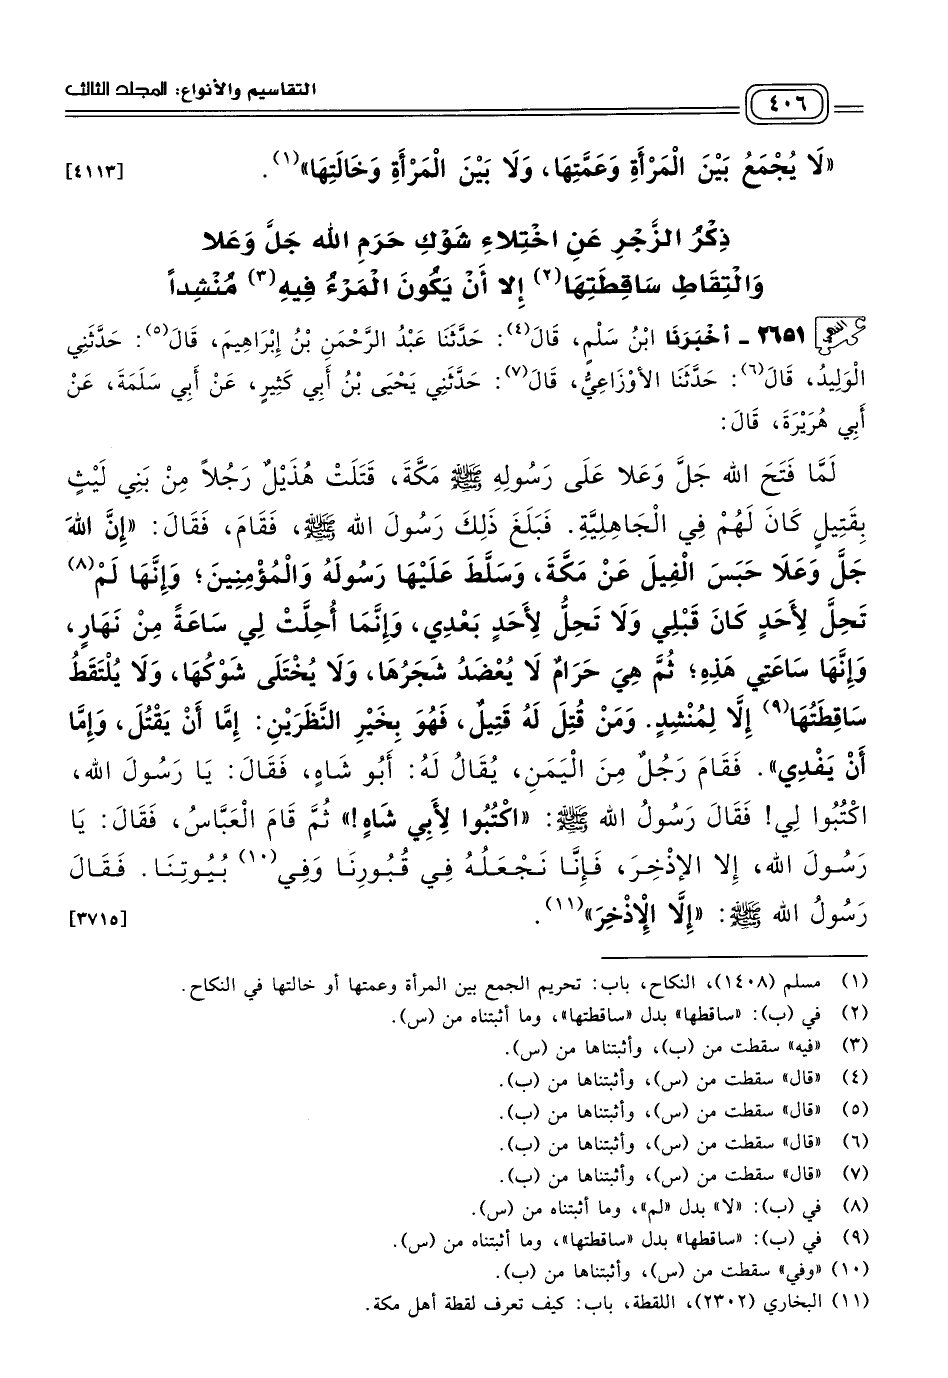 التقاسيم والأنواع: المجلد الثالث
٤٠٦
«لَا يُجْمَعُ بَيْنَ الْمَرْأَةِ وَعَمَّتِهَا، وَلَا بَيْنَ الْمَرْأَةِ وَخَالَتِهَا»(١). [٤١١٣]
ذِكْرُ الزَّجْرِ عَنِ اخْتِلاءِ شَوْكِ حَرَمِ الله جَلَّ وَعَلا
وَالْتِقَاطِ سَاقِطَتِهَا(٢) إِلا أَنْ يَكُونَ الْمَرْءُ فِيهِ(٣) مُنْشِداً
٣٦٥١ - أَخْبَرَنَا ابْنُ سَلْمٍ، قَالَ(٤): حَدَّثَنَا عَبْدُ الرَّحْمَنِ بْنُ إِبْرَاهِيمَ، قَالَ(٥): حَدَّثَنِي
الْوَلِيدُ، قَالَ(٦): حَدَّثَنَا الأَوْزَاعِيُّ، قَالَ(٧): حَدَّثَنِي يَحْيَى بْنُ أَبِي كَثِيرٍ، عَنْ أَبِي سَلَمَةَ، عَنْ
أَبِي هُرَيْرَةَ، قَالَ:
لَمَّا فَتَحَ الله جَلَّ وَعَلا عَلَى رَسُولِهِ ﷺ مَكَّةَ، قَتَلَتْ هُذَيْلٌ رَجُلاً مِنْ بَنِي لَيْثٍ
بِقَتِيلٍ كَانَ لَهُمْ فِي الْجَاهِلِيَّةِ. فَبَلَغَ ذَلِكَ رَسُولَ الله ﷺ، فَقَامَ، فَقَالَ: «إِنَّ اللهَ
جَلَّ وَعَلَا حَبَسَ الْفِيلَ عَنْ مَكَّةَ، وَسَلَّطَ عَلَيْهَا رَسُولَهُ وَالْمُؤْمِنِينَ؛ وَإِنَّهَا لَمْ(٨)
تَحِلَّ لِأَحَدٍ كَانَ قَبْلِي وَلَا تَحِلُّ لِأَحَدٍ بَعْدِي، وَإِنَّمَا أُحِلَّتْ لِي سَاعَةً مِنْ نَهَارٍ،
وَإِنَّهَا سَاعَتِي هَذِهِ؛ ثُمَّ هِيَ حَرَامٌ لَا يُعْضَدُ شَجَرُهَا، وَلَا يُخْتَلَى شَوْكُهَا، وَلَا يُلْتَقَطُ
سَاقِطَتُهَا(٩) إِلَّا لِمُنْشِدٍ. وَمَنْ قُتِلَ لَهُ قَتِيلٌ، فَهُوَ بِخَيْرِ النَّظَرَيْنِ: إِمَّا أَنْ يَقْتُلَ، وَإِمَّا
أَنْ يَفْدِي». فَقَامَ رَجُلٌ مِنَ الْيَمَنِ، يُقَالُ لَهُ: أَبُو شَاهٍ، فَقَالَ: يَا رَسُولَ الله،
اكْتُبُوا لِي! فَقَالَ رَسُولُ الله ﷺ: «اكْتُبُوا لِأَبِي شَاهٍ!» ثُمَّ قَامَ الْعَبَّاسُ، فَقَالَ: يَا
رَسُولَ الله، إِلا الإِذْخِرَ، فَإِنَّا نَجْعَلُهُ فِي قُبُورِنَا وَفِي(١٠) بُيُوتِنَا. فَقَالَ
رَسُولُ الله ﷺ: «إِلَّا الْإِذْخِرَ»(١١). [٣٧١٥]
(١) مسلم (١٤٠٨)، النكاح، باب: تحريم الجمع بين المرأة وعمتها أو خالتها في النكاح.
(٢) في (ب): «ساقطها» بدل «ساقطتها»، وما أثبتناه من (س).
(٣) «فيه» سقطت من (ب)، وأثبتناها من (س).
(٤) «قال» سقطت من (س)، وأثبتناها من (ب).
(٥) «قال» سقطت من (س)، وأثبتناها من (ب).
(٦) «قال» سقطت من (س)، وأثبتناها من (ب).
(٧) «قال» سقطت من (س)، وأثبتناها من (ب).
(٨) في (ب): «لا» بدل «لم»، وما أثبتناه من (س).
(٩) في (ب): «ساقطها» بدل «ساقطتها»، وما أثبتناه من (س).
(١٠) «وفي» سقطت من (س)، وأثبتناها من (ب).
(١١) البخاري (٢٣٠٢)، اللقطة، باب: كيف تعرف لقطة أهل مكة.